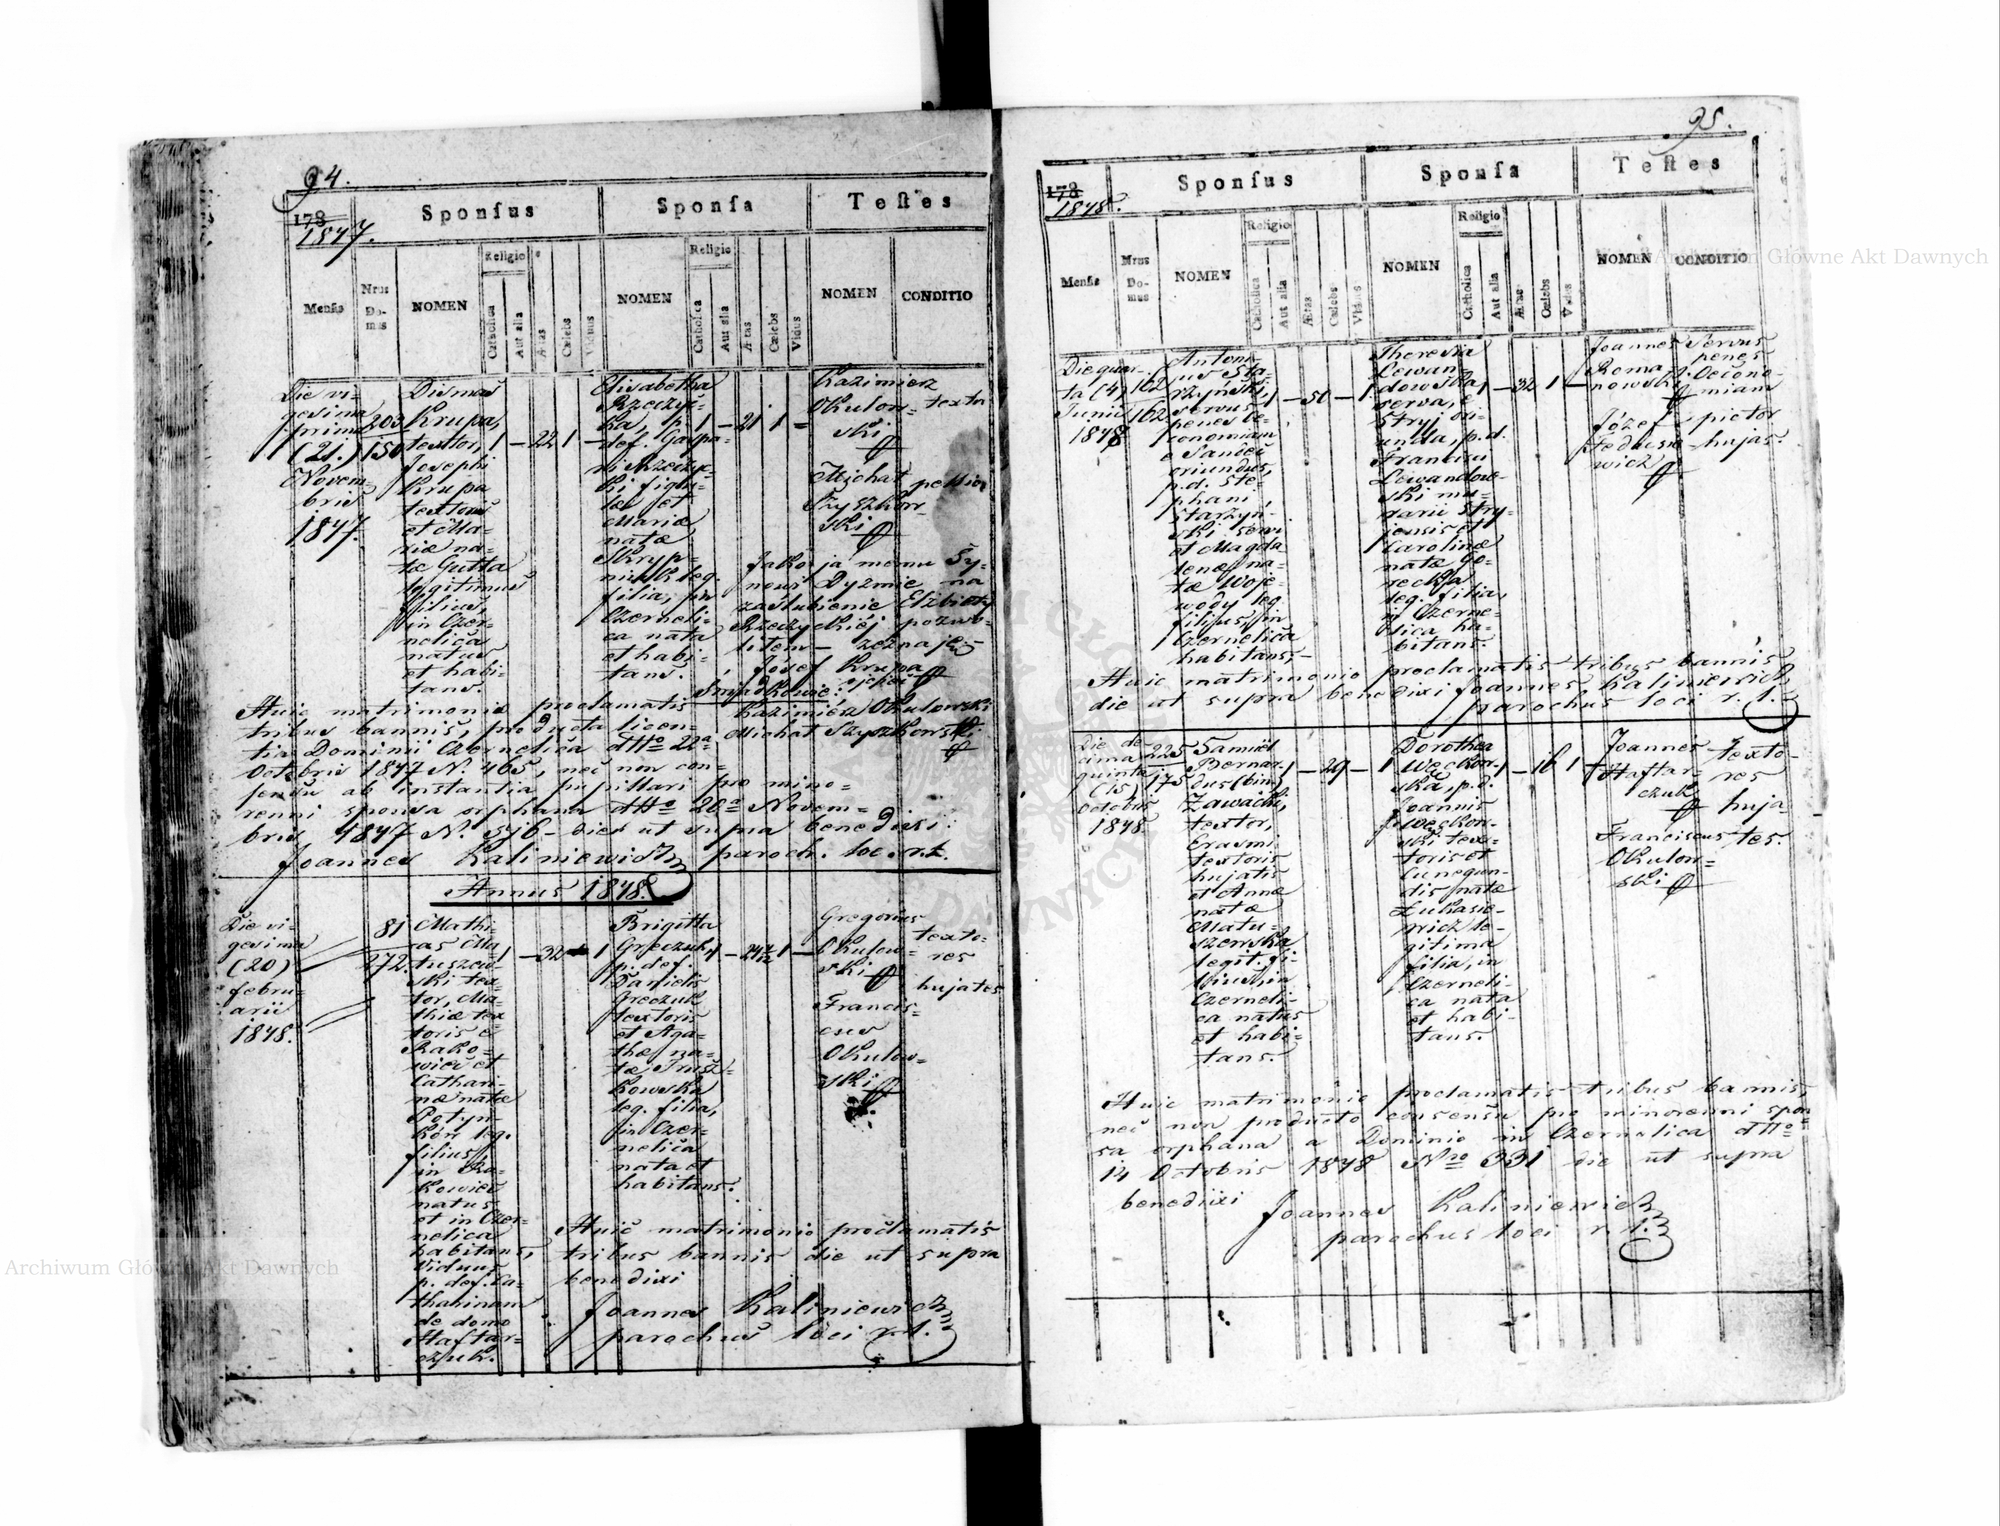 94.
178
1847.
Sponſus
Sponſa
Teſtes
Menſis
Nrus Domus
NOMEN
Religio
Catholica
Aut alia
Ætas
Cælebs
Viduus
NOMEN
Religio
Catholica
Aut alia
Ætas
Cælebs
Vidus
NOMEN
CONDITIO
Die vi-
gesima
prima
(21.)
Novem-
bris
1847.
203
150
Dismas
Krupa,
textor,
Josephi
Krupa
textoris
et Ma-
riæ na-
tæ Gutta
legitimus
filius,
in Czer-
nelica
natus
et habi-
tans.
1 – 22 1 –
Elisabetha
Rzeczyc-
ka, p.
def. Gaspa-
ri Rzeczyc-
ki figu-
li et
Mariæ
natæ
Skryp-
nik leg.
filia, in
Czerneli-
ca nata
et habi-
tans.
1 – 21 1 –
Kazimierz
Okulow-
ski
textor
Michał
Szyszkow-
ski
pellio
Jako ja memu Sy-
nowi Dyzmie na
zaślubienie Elżbiety
Rzeczyckiéj pozwo-
liłem – zeznaję
Józef Krupa
ojciec
Świadkowie:
Kazimierz Okulowski
Michał Szyszkowski
Huic matrimonio proclamatis
tribus bannis, producta licen-
tia Dominii Czernelica ddto 22a
Octobris 1847 N. 465, nec non con-
sensu ab instantia pupillari pro mino-
renni sponsa orphana ddto 20a Novem-
bris 1847 N. 576 – die ut supra benedixi:
Joannes Kaliniewicz paroch. loc. r. l.
Annus 1848.
Die vi-
gesima
(20)
febru-
arii
1848.
81
172.
Mathi-
as Ma-
tuszew-
ski tex-
tor, Ma-
thiæ tex
toris e
Rako-
wiec et
Cathari-
næ natæ
Petyn-
ków leg.
filius
in Ra-
kowiec
natus
et in Czer-
nelica
habitans,
viduus
p. def. Ca-
tharinam
de domo
Haftar-
czuk.
1 – 32 – 1
Brigitta
Greczuk
p. def.
Danielis
Greczuk
textoris
et Aga-
thæ na-
tæ Trusz-
kowska
leg. filia,
in Czer-
nelica
nata et
habitans.
Gregorius
Okulow-
ski
texto-
res
hujates
Francis-
cus
Okulow-
ski
Huic matrimonio proclamatis
tribus bannis die ut supra
benedixi
Joannes Kaliniewicz
parochus loci r. l.
95.
178
1848.
Sponſus
Sponſa
Teſtes
Menſis
Nrus Domus
NOMEN
Religio
Catholica
Aut alia
Ætas
Cælebs
Vidus
NOMEN
Religio
Catholica
Aut alia
Ætas
Cœlebs
Vidus
NOMEN
CONDITIO
Die quar-
ta (4)
Junii
1848
162
162
Antoni-
us Sta-
rzyński,
servus
penes oe-
conomiam
e Sandec
oriundus,
p. d. Ste-
phani
Starzyń-
ski servi
et Magda
lenæ na-
tæ Woje-
wody leg.
filius, in
Czernelica
habitans, –
1 – 50 – 1
Theresia
Lewan-
dowska
serva, e
Stryj ori-
unda, p. d.
Francisci
Lewandow-
ski mu-
rarii Stry-
jensis et
Carolinæ
natæ Go-
recka
leg. filia,
in Czerne-
lica ha-
bitans.
1 – 32 1 –
Joannes
Roma-
nowski
servus
penes
Oecono-
miam
Józef
Fedusie-
wicz
pictor
hujas.
Huic matrimonio proclamatis tribus bannis
die ut supra benedixi Joannes Kaliniewicz
parochus loci r. l.
Die de-
cima
quinta
(15)
Octobris
1848.
225
175
Samuel
Bernar-
dus (bin.)
Zawacki,
textor,
Erasmi
textoris
hujatis
et Annæ
natæ
Matu-
szewska
legit. fi-
lius, in
Czerneli-
ca natus
et habi-
tans.
1 – 29 – 1
Dorothea
Węckow-
ska, p. d.
Joannis
Węckow-
ski tex-
toris et
Cunegun-
dis natæ
Łukasie-
wicz le-
gitima
filia, in
Czerneli-
ca nata
et habi-
tans.
1 – 18 1 –
Joannes
Haftar-
czuk
texto-
res
huja-
tes.
Franciscus
Okulow-
ski
Huic matrimonio proclamatis tribus bannis,
nec non producto consensu pro minorenni spon
sa orphana a Dominio in Czernelica ddto
14 Octobris 1848 Nro 331 die ut supra
benedixi
Joannes Kaliniewicz
parochus loci r. l.
Archiwum Główne Akt Dawnych
Archiwum Główne Akt Dawnych